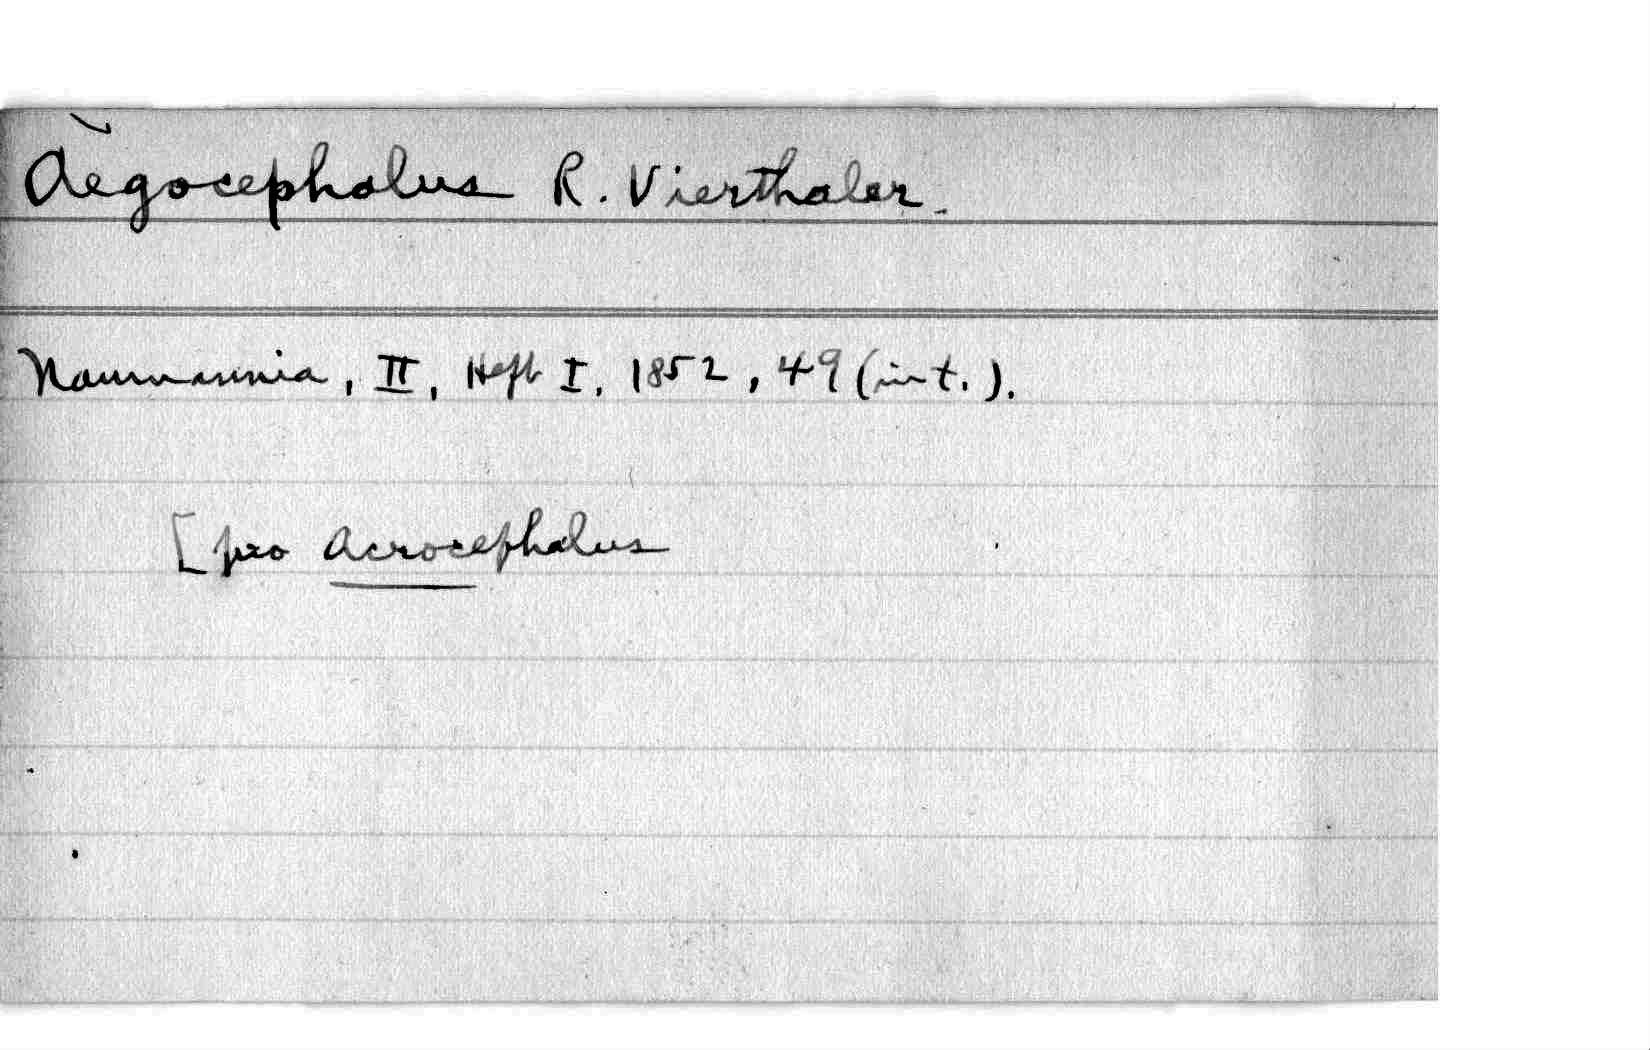 Aegocephalus R. Vierthaler.
Naumannia, II, Heft I, 1852, 49 (int.).
[pro Acrocephalus